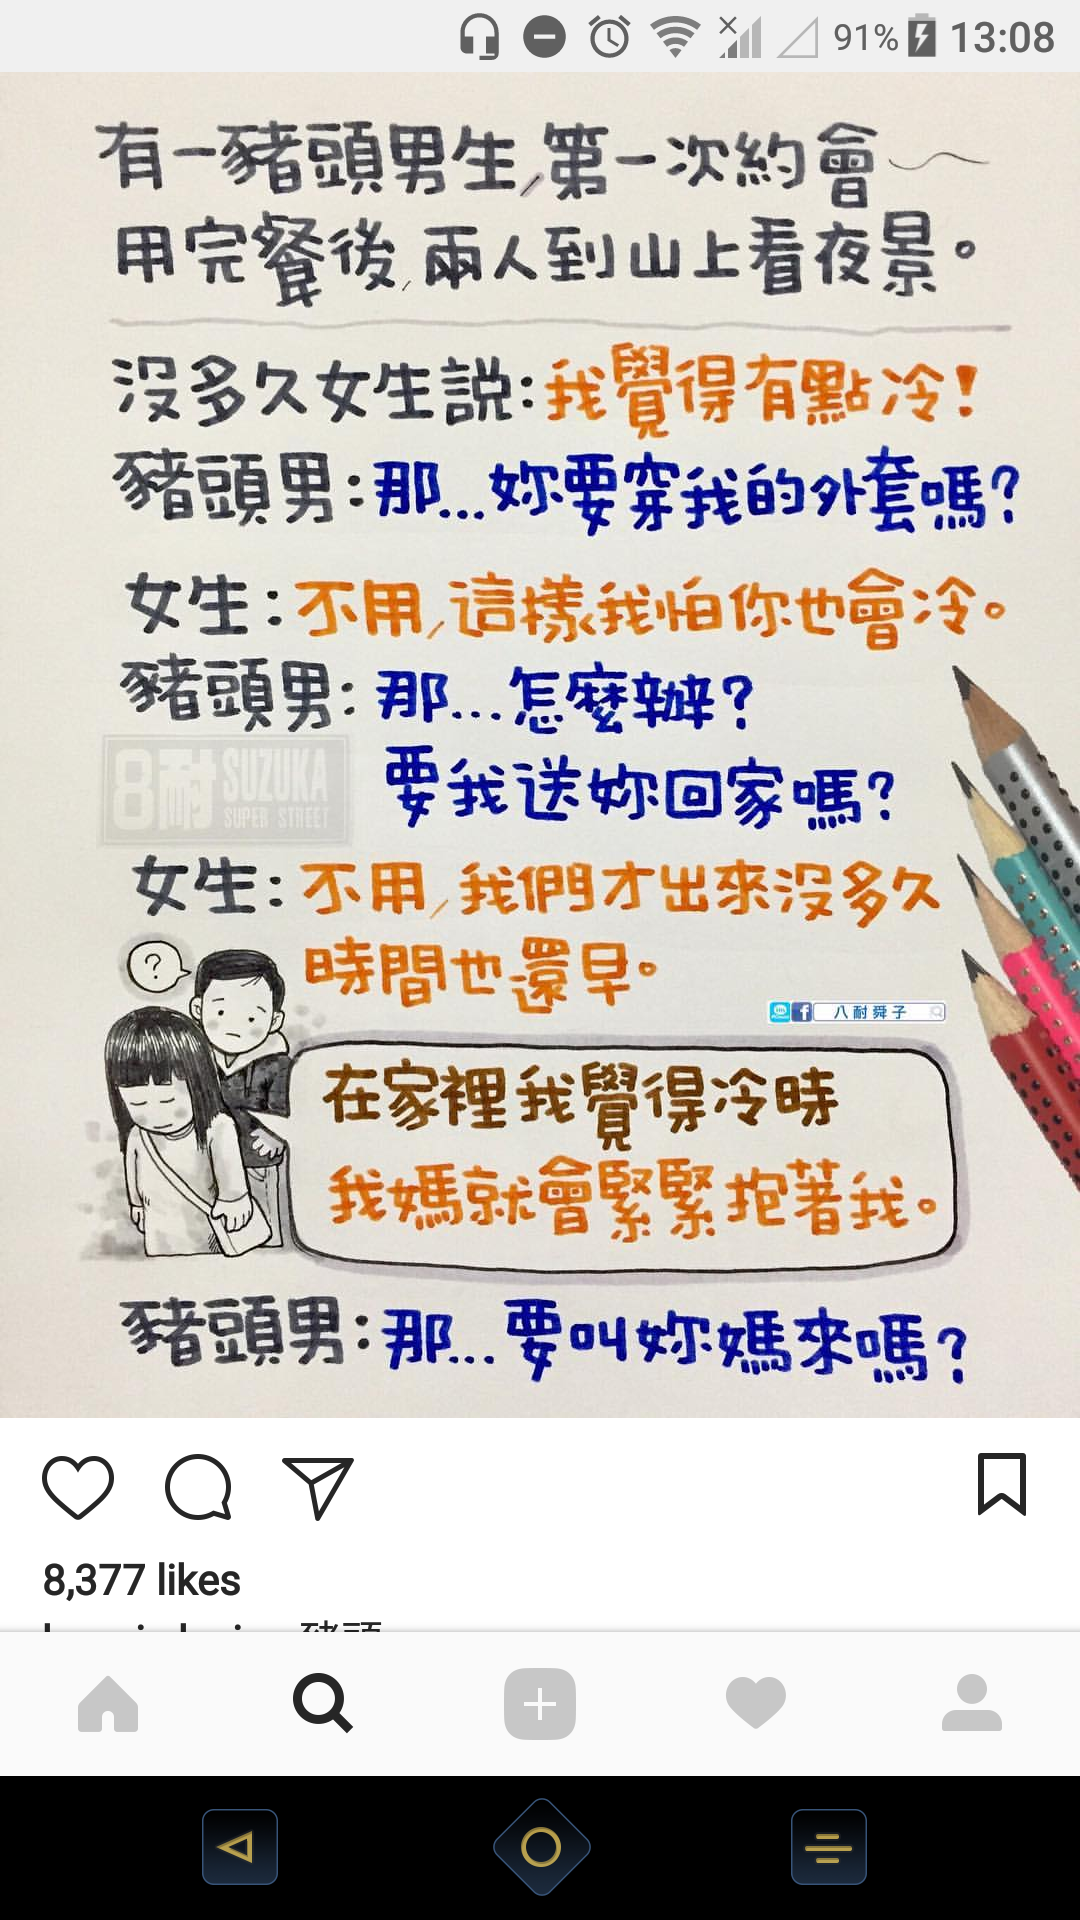 91% 13:08
有一豬頭男生,第一次約會
用完餐後,兩人到山上看夜景。
沒多久女生説:我覺得有點冷!
豬頭男:那...妳要穿我的外套嗎?
女生:不用,這樣我怕你也會冷。
豬頭男:那...怎麼辦?
要我送妳回家嗎?
8耐 SUZUKA
SUPER STREET
女生:不用,我們才出來沒多久
時間也還早。
?
八耐舜子
在家裡我覺得冷時
我媽就會緊緊抱著我。
豬頭男:那...要叫妳媽來嗎?
8,377 likes
豬頭